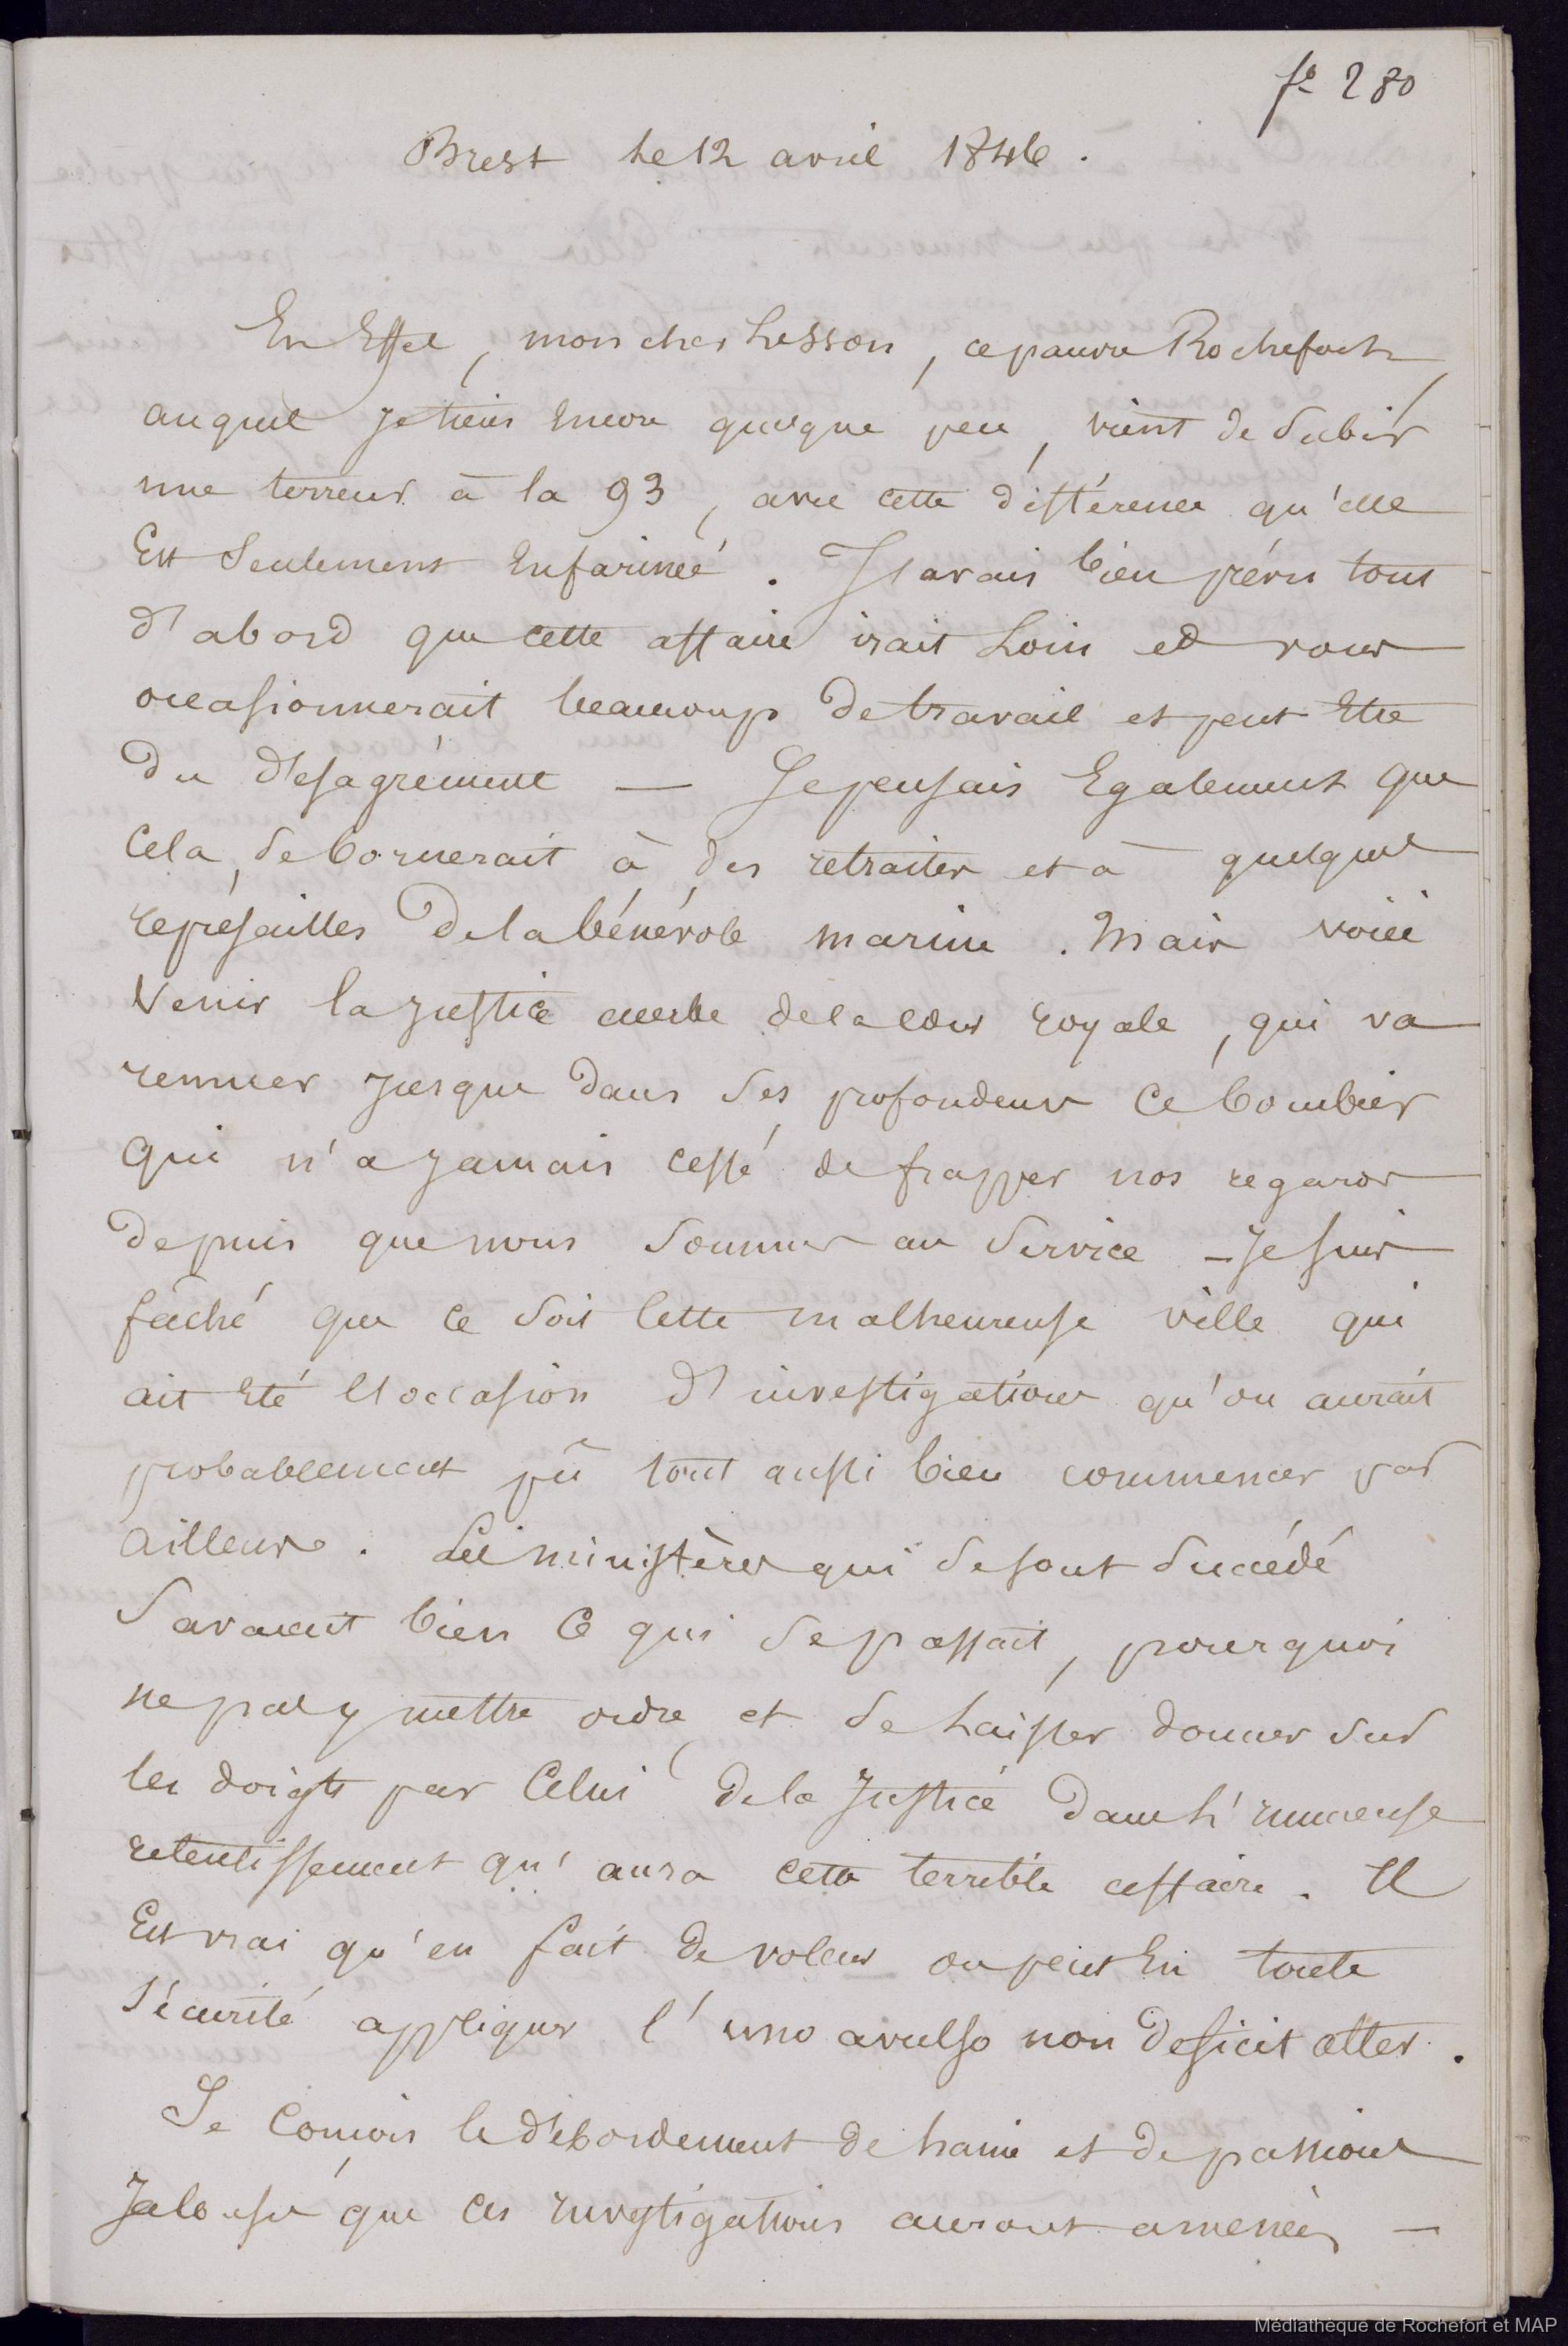 fo 280
Brest le 12 avril 1846.
En Effet, mon cher Lesson, ce pauvre Rochefort,
auquel je tiens encore quelque peu, vient de subir
une terreur à la 93, avec cette différence qu'elle
Est seulement Enfarinée. J'avais bien prévu tout
d'abord que cette affaire irait loin et vous
occasionnerait beaucoup de travail et peut Etre
du désagrément — Je pensais Egalement que
cela se bornerait à des retraites et à quelques
représailles de la bénévole marine. Mais voici
venir la justice de la cour royale, qui va
remuer jusque dans ses profondeurs ce bourbier
qui n'a jamais cessé de frapper nos regards
depuis que nous sommes au service — Je suis
fâché que ce soit cette malheureuse ville qui
ait Eté l'occasion d'investigations qu'on aurait
probablement pû tout aussi bien commencer par
ailleurs. Les ministères qui se sont succédé
savaient bien ce qui se passait, pourquoi
ne pas y mettre ordre et se laisser donner sur
les doigts par celui de la Justice dans l'immense
retentissement qu'aura cette terrible affaire. Il
Est vrai qu'en fait de voleurs on peut En toute
sécurité appliquer l'uno avulso non deficit alter.
Je conçois le débordement de haine et de passions
jalouses que ces investigations auront amenées —
Médiathèque de Rochefort et MAP